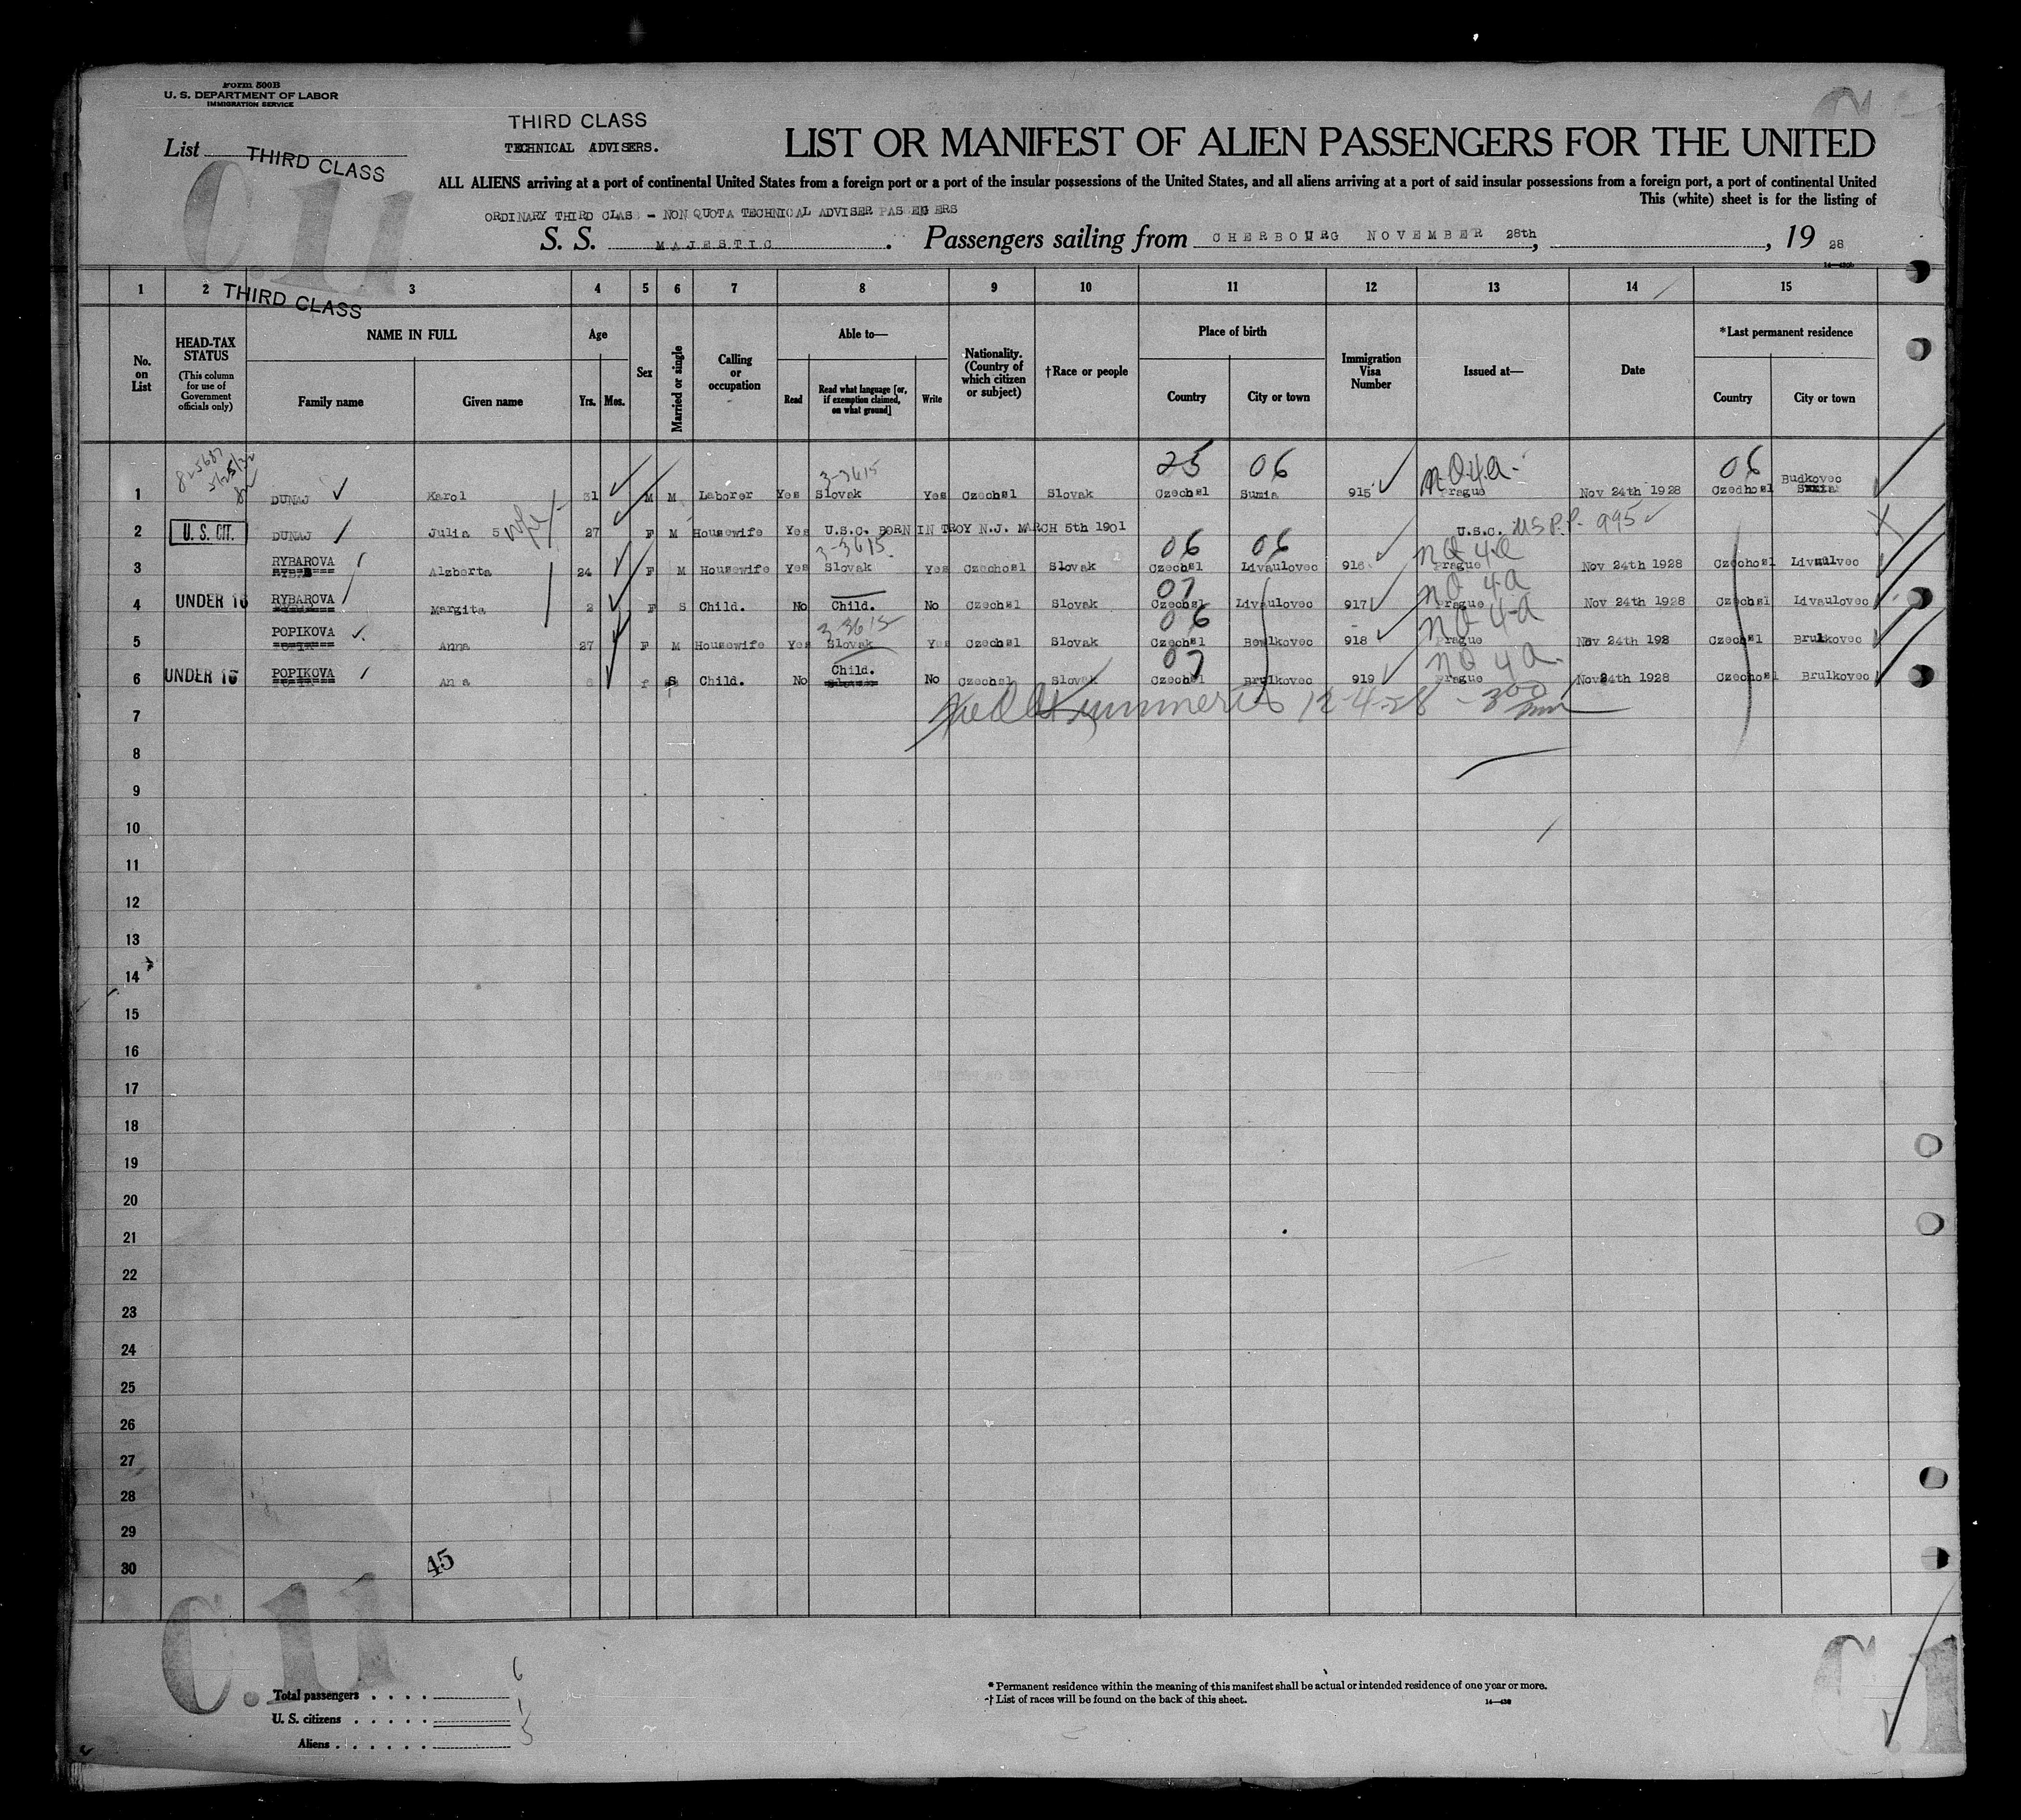 Form 500B
U. S. DEPARTMENT OF LABOR
IMMIGRATION SERVICE
List THIRD CLASS
THIRD CLASS
TECHNICAL ADVISERS.
LIST OR MANIFEST OF ALIEN PASSENGERS FOR THE UNITED
ALL ALIENS arriving at a port of continental United States from a foreign port or a port of the insular possessions of the United States, and all aliens arriving at a port of said insular possessions from a foreign port, a port of continental United
This (white) sheet is for the listing of
C.11
ORDINARY THIRD CLASS - NON QUOTA TECHNICAL ADVISER PASSENGERS
S. S. MAJESTIC. Passengers sailing from CHERBOURG NOVEMBER 28th, , 19 28
1 2 3 4 5 6 7 8 9 10 11 12 13 14 15
THIRD CLASS
No. on List
HEAD-TAX STATUS (This column for use of Government officials only)
NAME IN FULL Family name Given name
Age Yrs. Mos.
Sex
Married or single
Calling or occupation
Able to— Read Read what language [or, if exemption claimed, on what ground] Write
Nationality. (Country of which citizen or subject)
†Race or people
Place of birth Country City or town
Immigration Visa Number
Issued at—
Date
*Last permanent residence Country City or town
25 06 NQ4a 06
3-3615 Budkovec
1 DUNAJ Karol 31 M M Laborer Yes Slovak Yes Czechsl Slovak Czechsl Sumia 915 Prague Nov 24th 1928 Czedhosl
2 U. S. CIT. DUNAJ Julia 5 wife 27 F M Housewife Yes U.S.C. BORN IN TROY N.J. MARCH 5th 1901 U.S.C. USP.P. 995
3-3615 06 06 NQ 4a
3 RYBAROVA Alzberta 24 F M Housewife Yes Slovak Yes Czechosl Slovak Czechsl Livaulovec 916 Prague Nov 24th 1928 Czechosl Livaulvec
07 NQ 4a
4 UNDER 16 RYBAROVA Margita 2 F S Child. No Child. No Czechsl Slovak Czechsl Livaulovec 917 Prague Nov 24th 1928 Czechsl Livaulovec
3-3615 06 NQ 4-a
5 POPIKOVA Anna 27 F M Housewife Yes Slovak Yes Czechsl Slovak Czechsl 918 Prague Nov 24th 198 Czechsl Brulkovec
07 NQ 4a
6 UNDER 16 POPIKOVA An a 6 f S Child. No Child. No Czechsl Slovak Czechsl Brulkovec 919 Prague Nov24th 1928 Czechosl Brulkovec
7 12-4-28
8
9
10
11
12
13
14
15
16
17
18
19
20
21
22
23
24
25
26
27
28
29
30
45
C.11
Total passengers . . . . 6
U. S. citizens . . . . . 1
Aliens . . . . . . 5
* Permanent residence within the meaning of this manifest shall be actual or intended residence of one year or more.
† List of races will be found on the back of this sheet.
C.1